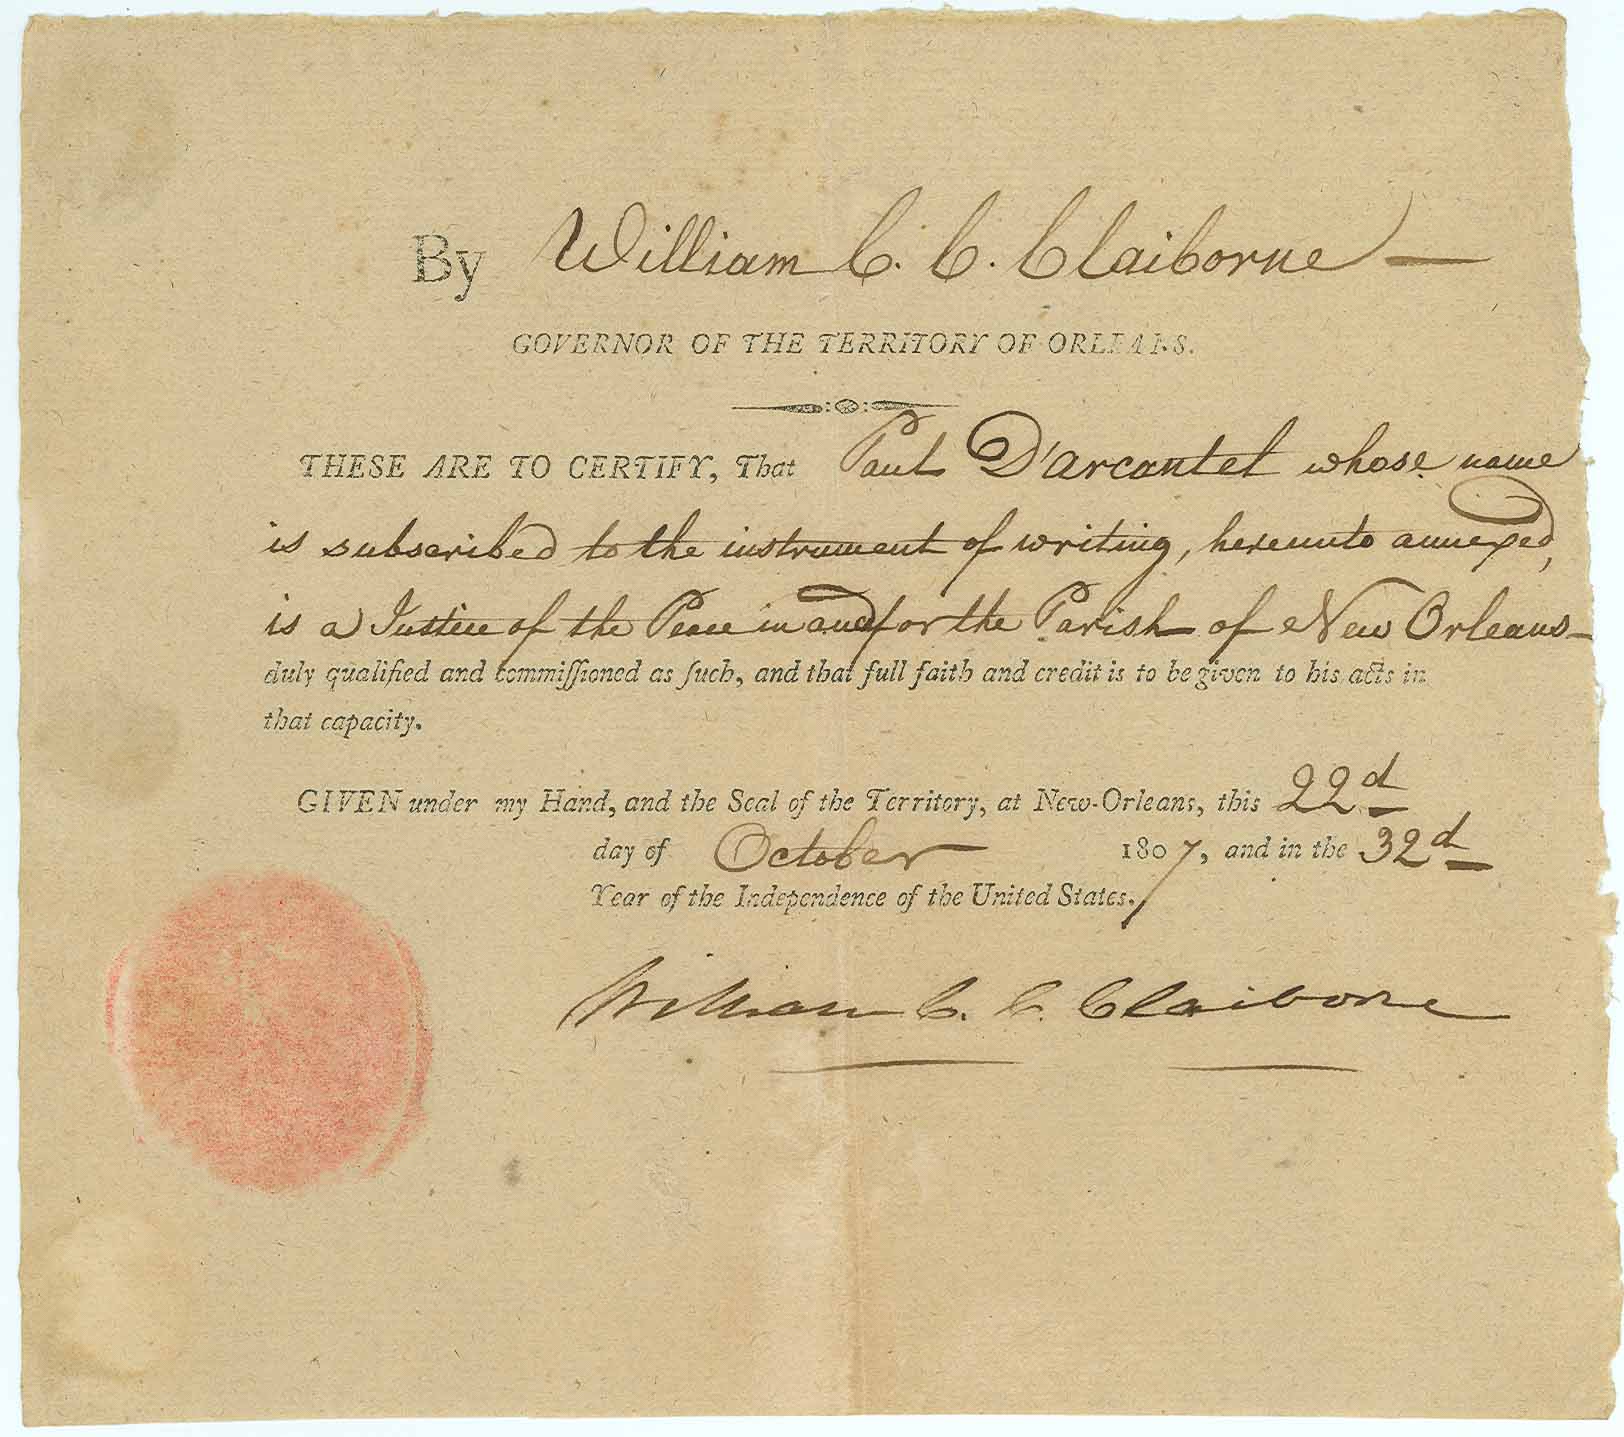 By William C. C. Claiborne —
GOVERNOR OF THE TERRITORY OF ORLEANS.
THESE ARE TO CERTIFY, That Paul D'arcantel whose name
is subscribed to the instrument of writing, hereunto annexed,
is a Justice of the Peace in and for the Parish of New Orleans —
duly qualified and commiſſioned as ſuch, and that full faith and credit is to be given to his acts in
that capacity.
GIVEN under my Hand, and the Seal of the Territory, at New-Orleans, this 22d
day of October 1807, and in the 32d
Year of the Independence of the United States.
William C. C. Claiborne